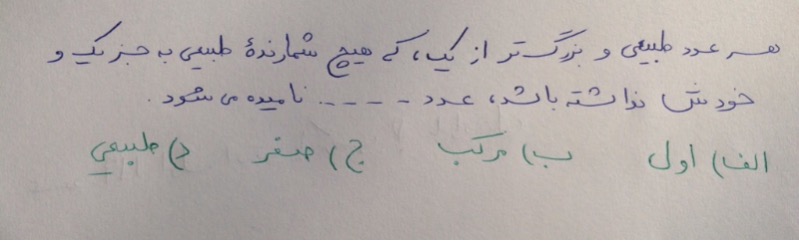 هر عدد طبیعی و بزرگ‌تر از یک، که هیچ شمارندهٔ طبیعی به جز یک و
خودش نداشته باشد، عدد ----- نامیده می شود.
الف) اول ب) مرکب ج) صفر د) طبیعی